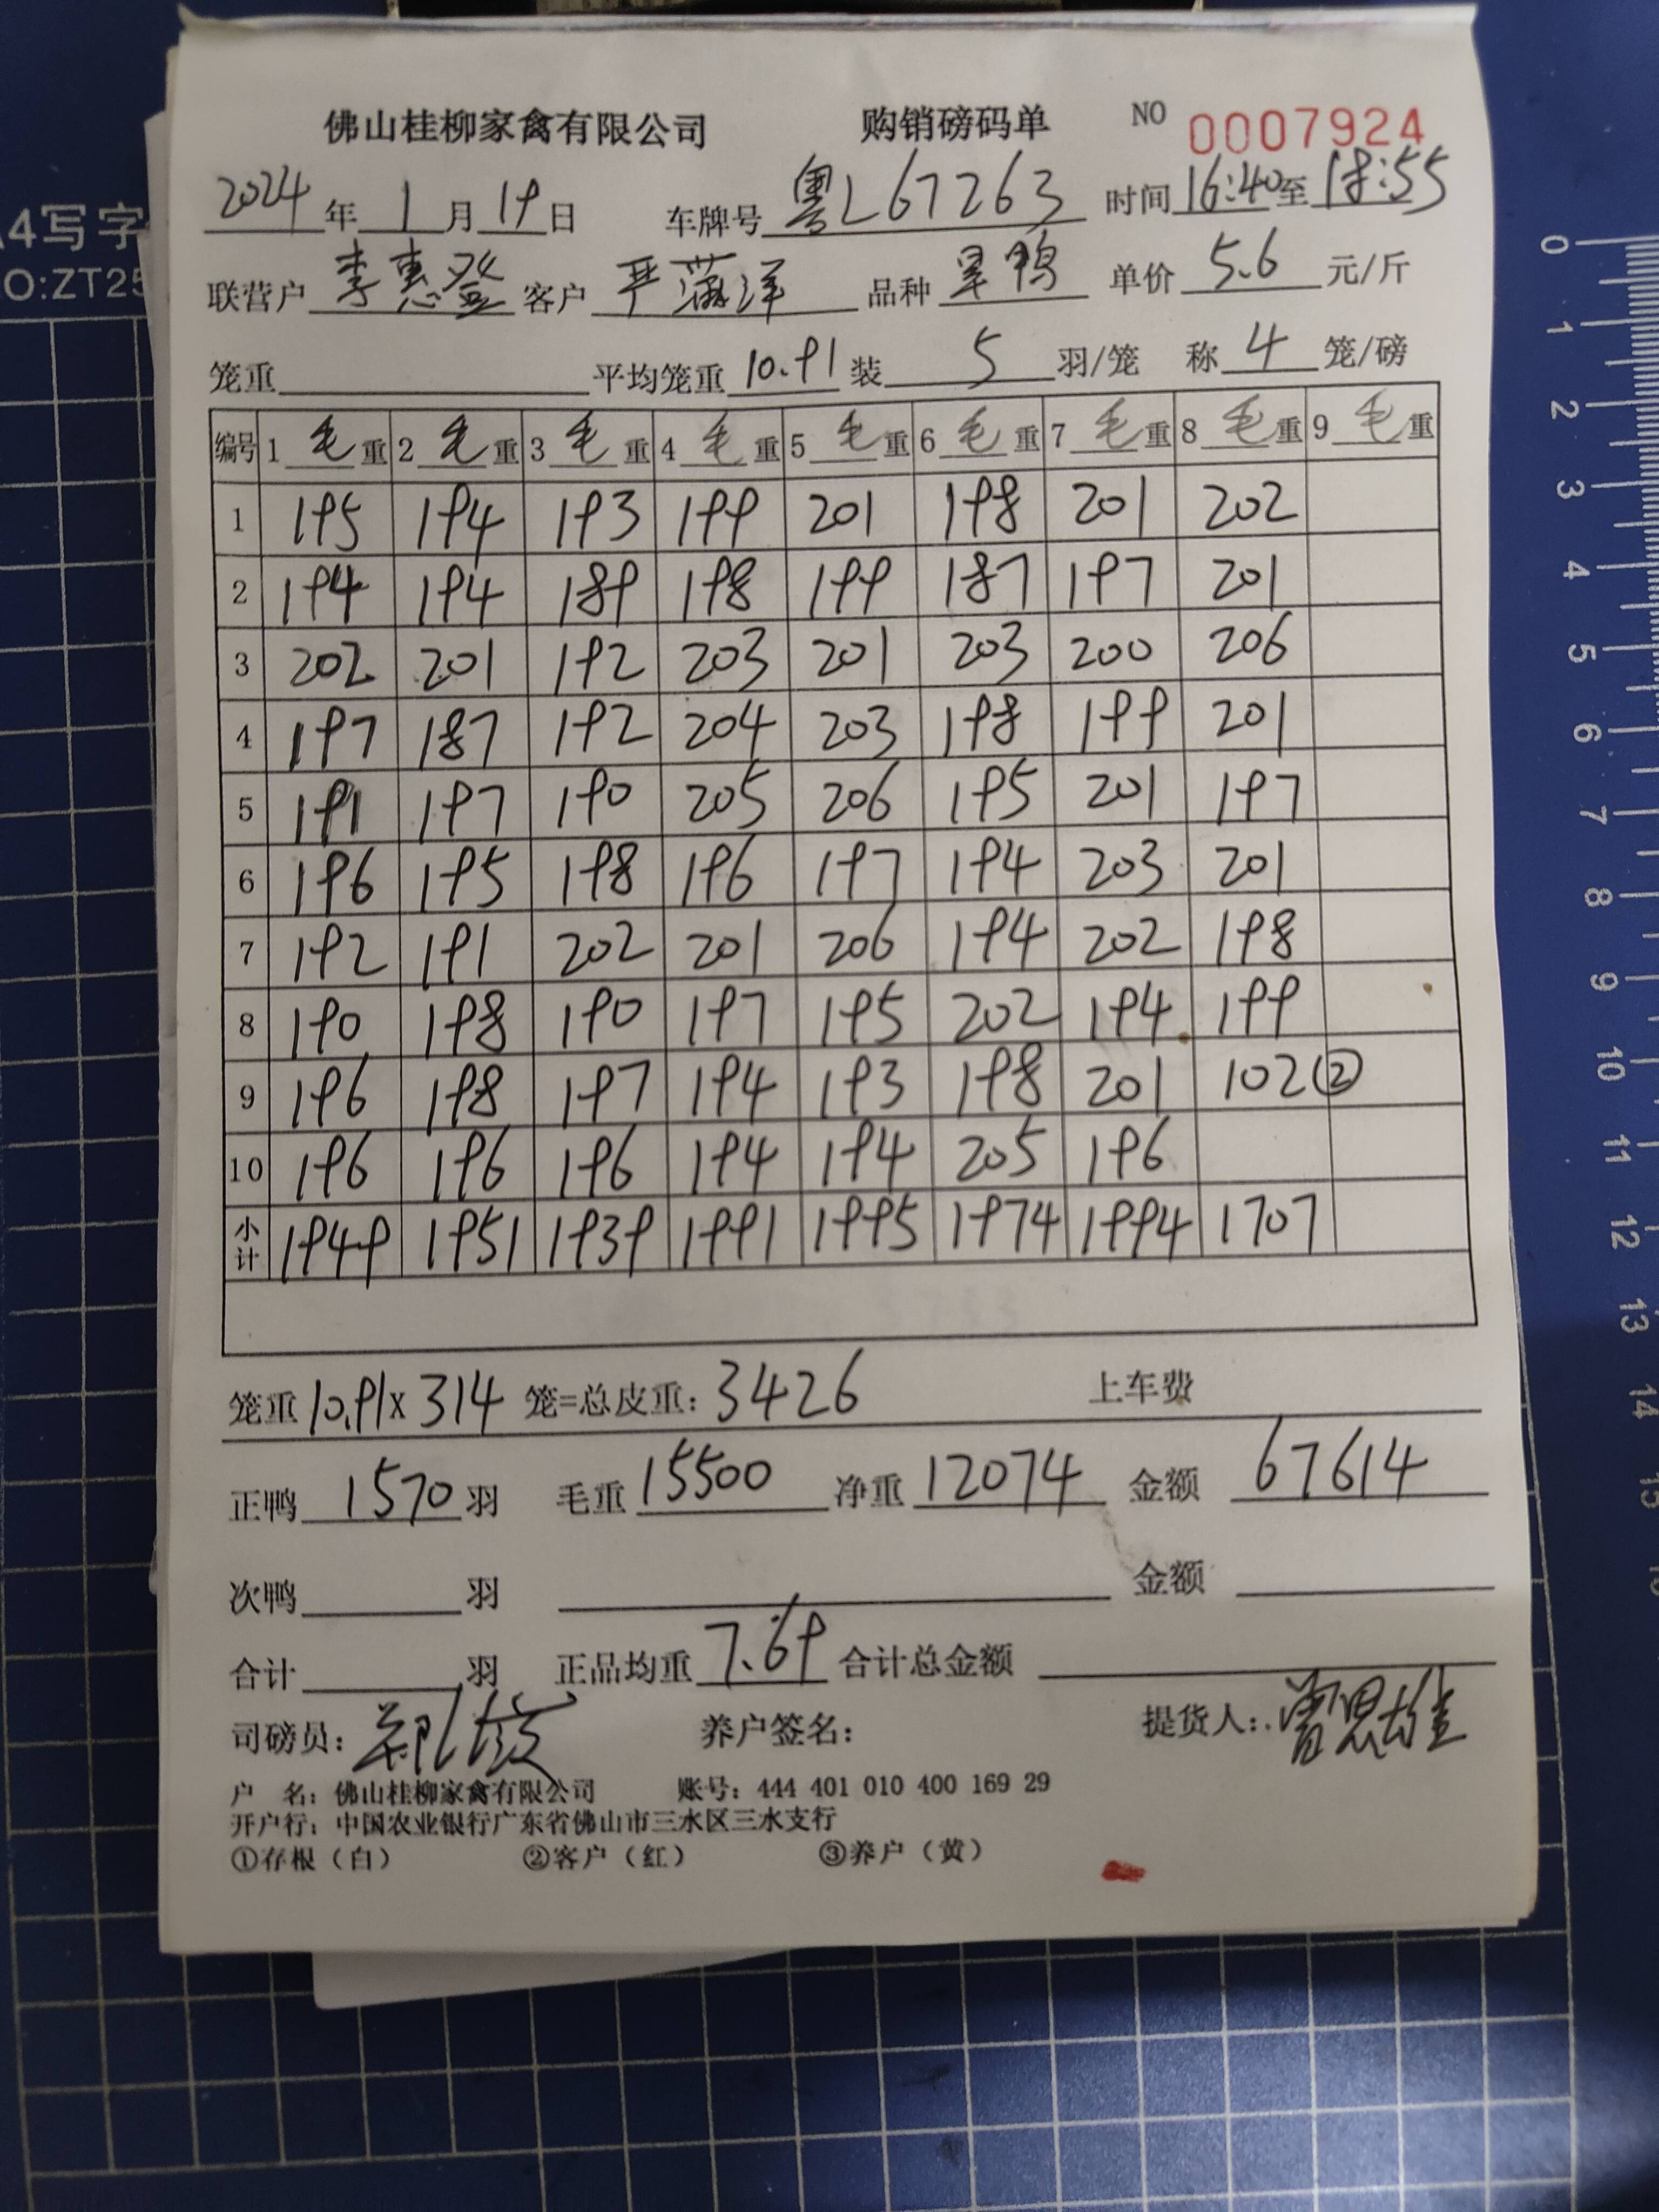 佛山桂柳家禽有限公司 购销磅码单 NO 0007924
2024年1月19日 车牌号 粤L67263 时间 16:40至18:55
联营户 李惠登 客户 严满洋 品种 旱鸭 单价 5.6 元/斤
笼重 平均笼重 10.91 装 5 羽/笼 称 4 笼/磅
编号 1 毛重 2 毛重 3 毛重 4 毛重 5 毛重 6 毛重 7 毛重 8 毛重 9 毛重
1 195 194 193 199 201 198 201 202
2 194 194 189 198 199 187 197 201
3 202 201 192 203 201 203 200 206
4 197 187 192 204 203 198 199 201
5 191 197 190 205 206 195 201 197
6 196 195 198 196 197 194 203 201
7 192 191 202 201 206 194 202 198
8 190 198 190 197 195 202 194 199
9 196 198 197 194 193 198 201 102②
10 196 196 196 194 194 205 196
小计 1949 1951 1939 1991 1995 1974 1994 1707
笼重 10.91x 314 笼=总皮重: 3426 上车费
正鸭 1570 羽 毛重 15500 净重 12074 金额 67614
次鸭 羽 金额
合计 羽 正品均重 7.69 合计总金额
司磅员: 养户签名: 提货人: 曾思雄
户 名: 佛山桂柳家禽有限公司 账号: 444 401 010 400 169 29
开户行: 中国农业银行广东省佛山市三水区三水支行
①存根（白） ②客户（红） ③养户（黄）
A4写字
NO:ZT25
0 1 2 3 4 5 6 7 8 9 10 11 12 13 14 15